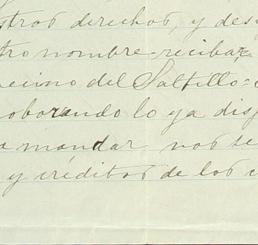 stros derechos, y des
tro nombre reciba
ecino del Saltillo =
oborando lo ya disp
a mandar nos se
y créditos de los c